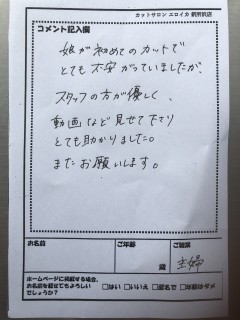 カットサロン エロイカ 新所沢店
コメント記入欄
娘が初めてのカットで
とても不安がっていましたが、
スタッフの方が優しく、
動画など見せて下さり
とても助かりました。
またお願いします。
お名前
ご年齢
ご職業
歳
主婦
ホームページに掲載する場合、
お名前を載せてもよろしい
でしょうか？
□はい □いいえ □匿名で □年齢はダメ